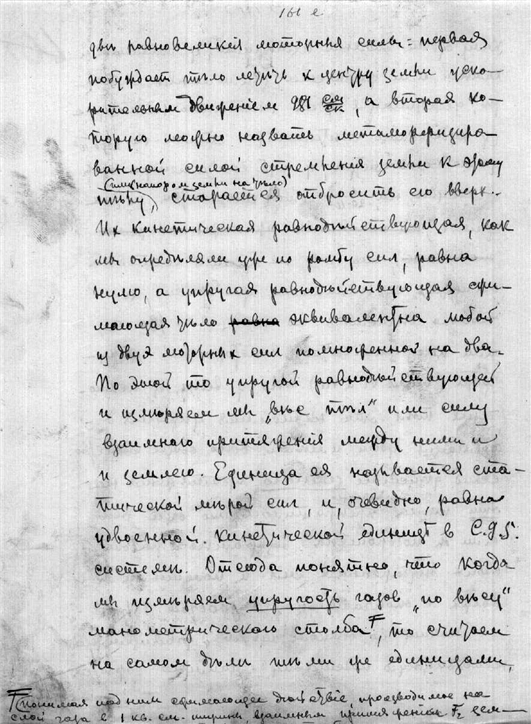 161 е.
двѣ равновеликія моторныя силы: первая
побуждает тѣло летѣть к центру земли уско-
рительным движеніем 981 см/ск, а вторая ко-
торую можно назвать метаморфизиро-
ванной силой стремленія земли к этому
(или напором земли на тѣло)
тѣлу, старается отбросить его вверх.
Их кинетическая равнодѣйствующая, как
мы опредѣляли уже по ромбу сил, равна
нулю, а упругая равнодѣйствующая сжи-
мающая тѣло равна эквивалентна любой
из двух моторных сил помноженной на два.
По этой то упругой равнодѣйствующей
и измѣряем мы „вѣс тѣл" или силу
взаимного притяженія между ними и
и землею. Единица ея называется ста-
тической мѣрой сил, и, очевидно, равна
удвоенной кинетической единицѣ в C.g.s.
системѣ. Отсюда понятно, что когда
мы измѣряем упругость газов „по вѣсу"
манометрического столба F, то считаем
на самом дѣлѣ тѣми же единицами,
F (понимая под ним сжимающее дѣйствіе, производимое на
слой газа в 1 кв. см. ширины взаимным притяженіем F, есм-